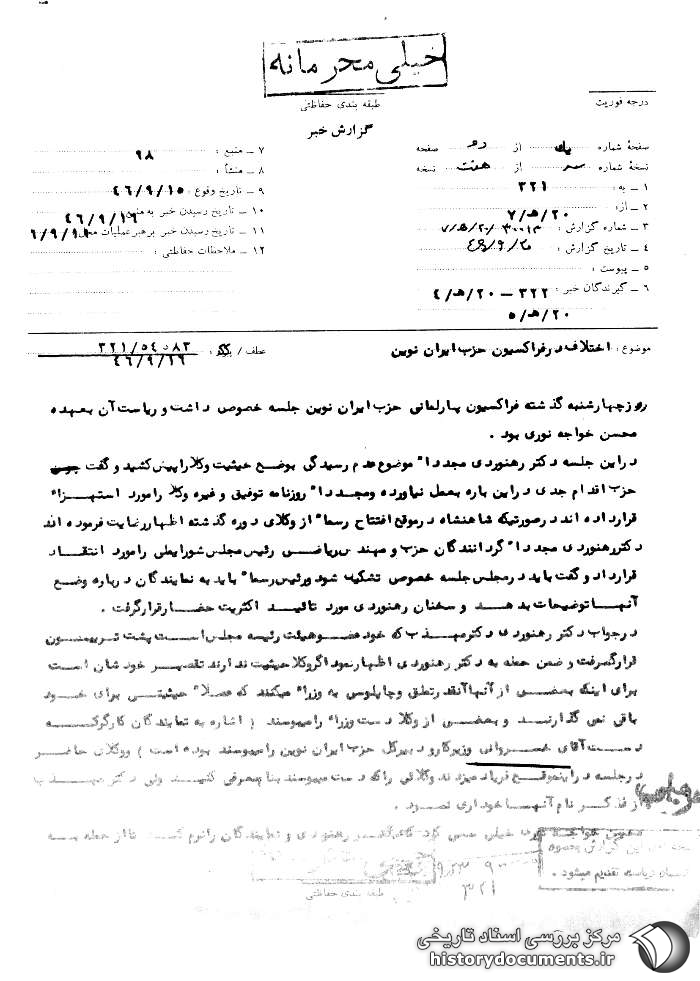 خیلی محرمانه
طبقه بندی حفاظتی
گزارش خبر
درجه فوریت
صفحهٔ شماره یک از دو صفحه
نسخهٔ شماره سه از هفت نسخه
۱ ـ به: ۳۲۱
۲ ـ از: ۲۰/ه‍/۷
۳ ـ شماره گزارش: ۳۰۰۱۳/۲۰/ه‍/۷
۴ ـ تاریخ گزارش: ۴۶/۹/۲۰
۵ ـ پیوست:
۶ ـ گیرندگان خبر: ۳۲۲ – ۲۰/ه‍/۴
۲۰/ه‍/۵
۷ ـ منبع: ۹۸
۸ ـ منشأ:
۹ ـ تاریخ وقوع: ۴۶/۹/۱۵
۱۰ ـ تاریخ رسیدن خبر به منبع ۴۶/۹/۱۶
۱۱ ـ تاریخ رسیدن خبر برهبر عملیات محل ۶/۹/۱۹
۱۲ ـ ملاحظات حفاظتی:
موضوع: اختلاف در فراکسیون حزب ایران نوین
عطف / ۳۲۱/۵۴۵۸۳
۴۶/۹/۱۶
روز چهارشنبه گذشته فراکسیون پارلمانی حزب ایران نوین جلسه خصوصی داشت و ریاست آن بعهده
محسن خواجه نوری بود .
در این جلسه دکتر رهنوردی مجدداً موضوع عدم رسیدگی بوضع حیثیت وکلا را پیش کشید و گفت
حزب اقدام جدی در این باره بعمل نیاورده و مجدداً روزنامه توفیق و غیره وکلا را مورد استهزاء
قرار داده اند در صورتیکه شاهنشاه در موقع افتتاح رسماً از وکلای دوره گذشته اظهار رضایت فرموده اند
دکتر رهنوردی مجدداً گردانندگان حزب و مهندس ریاضی رئیس مجلس شورایملی را مورد انتقاد
قرار داد و گفت باید در مجلس جلسه خصوصی تشکیل شود و رئیس رسماً باید به نمایندگان درباره وضع
آنها توضیحات بدهد و سخنان رهنوردی مورد تائید اکثریت حضار قرار گرفت .
در جواب دکتر رهنوردی دکتر مهذب که خود عضو هیئت رئیسه مجلس است پشت تریبون
قرار گرفت و ضمن حمله به دکتر رهنوردی اظهار نمود اگر وکلا حیثیت ندارند تقصیر خودشان است
برای اینکه بعضی از آنها آنقدر تملق و چاپلوسی به وزراء میکنند که عملاً حیثیتی برای خود
باقی نمی گذارند و بعضی از وکلا دست وزراء را میبوسند ( اشاره به نمایندگان کارگر که
دست آقای خسروانی وزیر کار و دبیرکل حزب ایران نوین را میبوسند بوده است ) و وکلای حاضر
در جلسه در اینموقع فریاد میزدند وکلائی را که دست میبوسند بنا معرفی کنید ولی دکتر مهذب
از ذکر نام آنها خودداری نمود .
محسن خواجه نوری خیلی سعی کرد که دکتر رهنوردی و نمایندگان را نرم کند تا از حمله به
این گزارش
تقدیم میشود .
۳۲۱
طبقه بندی حفاظتی
مرکز بررسی اسناد تاریخی
historydocuments.ir